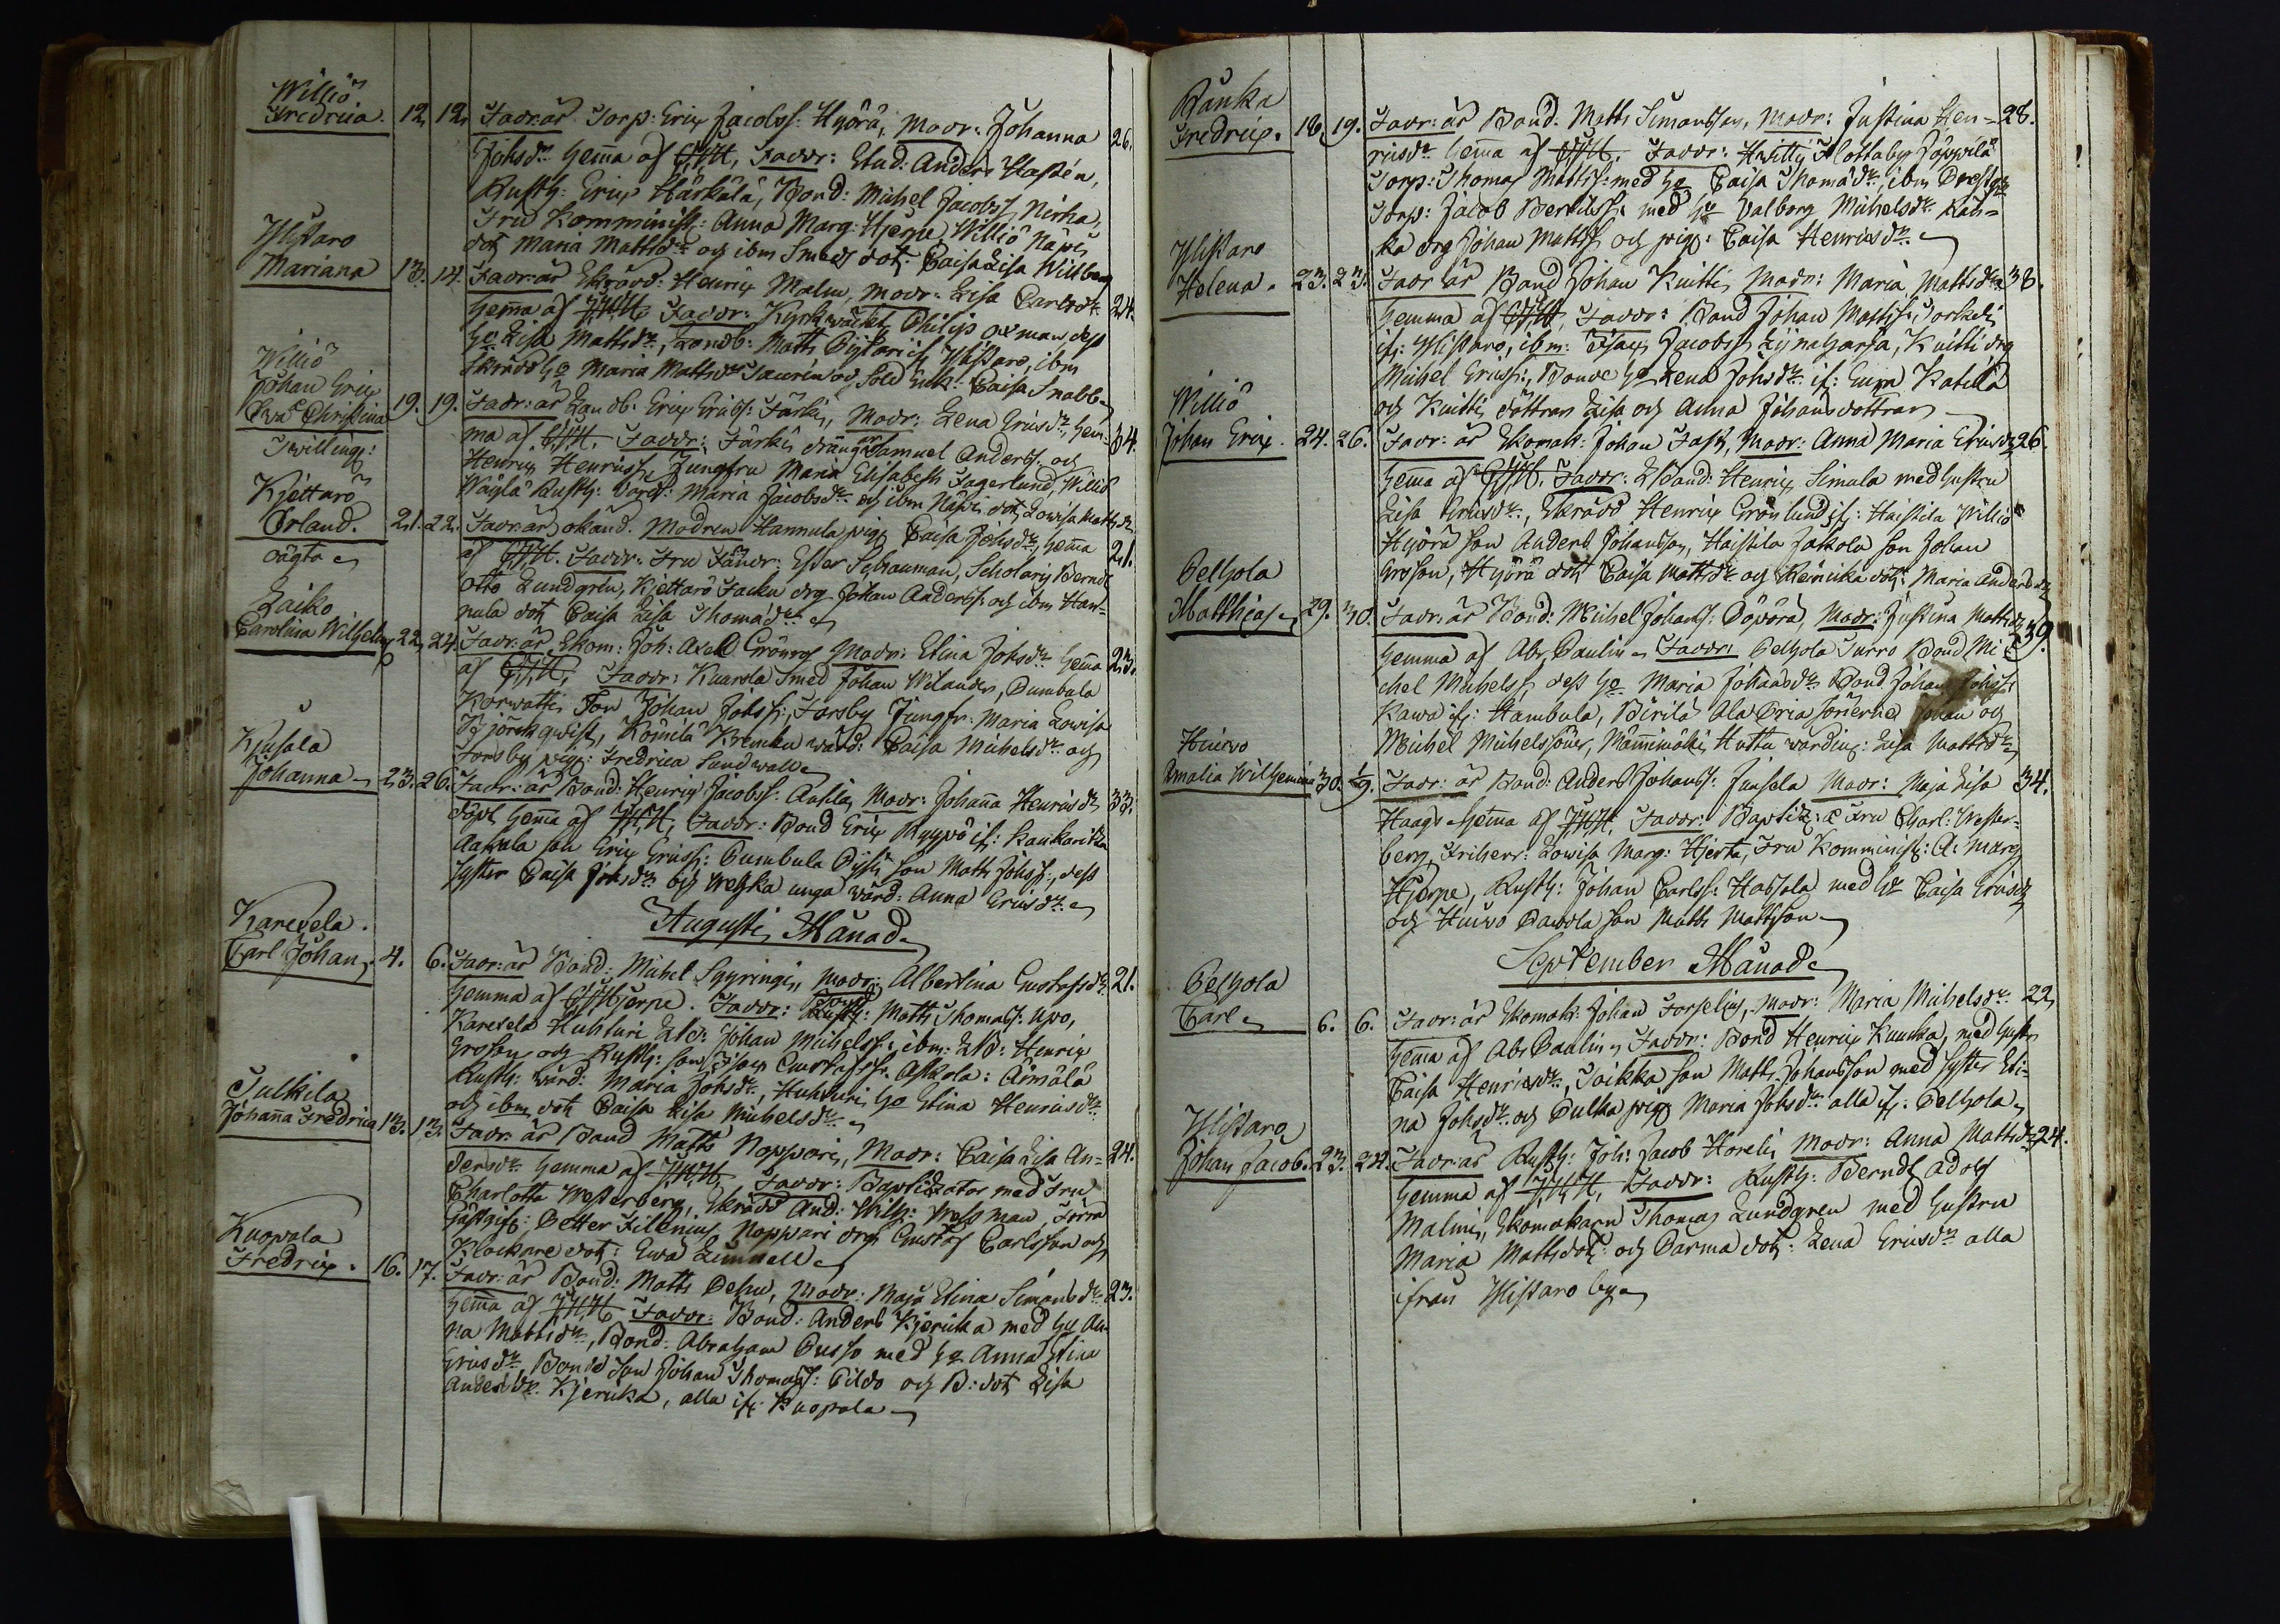 Williö
Fredrica. 12. 12. Fadr: är Torp: Eric Jacobss: Hyörä, Modr: Johanna 26.
Johsdr hemma af JHH, Faddr: Stud: Anders Hasten,
Rusth: Eric Härkälä, Bond: Michel Jacobss Nirha,
Fru Komminist: Anna Marg: Hjerpe Williö Näpi
dotr Maria Mattsdr och ibm Smeds dotr Caisa Lisa Willberg
Ylistaro
Mariana 13. 14. Fadr: är Skrädd: Henric Malm, Modr: Lisa Carlsdr 24.
hemma af JHH, Faddr: Kyrkwäckt: Philip Oxman, dess
ho Lisa Mattsdr, Landb: Matts Ylistaro, ibm
Skrädd ho Maria Mattsdr och Sold Enk: Caisa Snabb
Williö
Johan Eric
Eva Christina 19. 19. Fadr: är Landb: Eric Ericss: Färki, Modr: Lena Ericsdr, hem- 34.
Twilling:
ma af JHH. Faddr: Färki drängar Samuel Anderss: och
Henric Henricss, Jungfru Maria Elisabeth Fagerlund, Williö
Wäylä Rusth: Maria Jacobsdr och ibm Näpi dotr Lowisa Mattsdr
Kjettarö
Erland. 21. 22. Fadr: är okänd. Modren Hannula pig Caisa Johsdr, hemma 21.
oägta
af JHH. Faddr: Fru Fändr: Ester Schauman, Scholaris Berndt
Otto Lundgren, Kjettarö Facku drg Johan Anderss: och ibm Han-
nula dotr Caisa Lisa Thomädr
Laiko
Carolina Wilhelm: 22. 24. Fadr: är Skom: Joh: Axel Grönroos Modr: Stina Johsdr hemma 23.
af JHH, Faddr: Kuarsla Smed Johan Wilander, Pumbula
Korwatti Son Johan Johss:, Forsby Jungfr: Maria Lowisa
Björckqwist, Kömilä Kremku wärd: Caisa Michelsdr och
Forsby pig: Fredrica Sundwall
Kjusala
Johanna 23. 26. Fadr: är Bond: Henric Jacobss: Anttila, Modr: Johanna Henricsdr 33.
döpt hemma af JHH, Faddr: Bond Eric Ryypö if: Kaukariska
Aakala son Eric Ericss: Pumbula Pyssy Son Matts Johss:, dess
Syster Caisa Johsdr och unga wärd: Anna Ericsdr
Augusti Månad.
Karevela.
Carl Johan 4. 6. Fadr: är Bond: Michel Syyringi, Modr: Albertina Gustafsdr 21.
hemma af JHHjerpe. Faddr: Rusth: Matts Thomass: Upo,
Karevela Huhturi Johan Michelss:, ibm: Henric
Groson, och Rusth: Son Isac Gustafss: Askola: Ärnälä
Rusth: wärd: Maria Johsdr, Huhturi, ho Stina Henricsdr
och ibm dotr Caisa Lisa Michelsdr
Tulkila
Johanna Fredrica 13. 13. Fadr: är Bond Matts Noppari, Modr: Caisa Lisa An- 24.
dersdr hemma af JHH, Faddr: Baptizator med Fru
Charlotta Westerberg, Skrädd And: Wilh: Westman, Förra
Gästgif: Petter Filenius, Noppari drg Gustaf Carlsson och
Klockare dotr: Ewa Limnell
Kuopala
Fredric. 16. 17. Fadr: är Bond: Matts Oehu, Modr: Maja Stina Simonsdr 23.
hemma af JHH Faddr: Bond: Anders Kjericka med ho An-
na Mattsdr, Bond: Abraham Pusso med ho Anna Stina
Ericsdr, Bonde Son Johan Thomass: Pildo och B: dotr Lisa
Andersdr Kjericka, alla if: Kuopala
Ränka
Fredric. 18. 19. Fadr: är Bond: Matts Simonsson, Modr: Justina Hen- 28.
ricsdr hemma af JHH. Faddr: Hvittis Flottaby Jöppilä
Torp: Thomas Mattss: med ho Caisa Thomädr, ibm
Torp: Jacob Bertilss: med ho Valborg Michelsdr Rän-
ka drg Johan Mattss: och pig: Caisa Henricsdr
Ylistaro
Helena. 23. 23. Fadr är Bond Johan Knitti, Modr: Maria Mattsdr 38.
hemma af JHH, Faddr: Bond Johan Mattss: Torkeli
if: Ylistaro, ibm: Isac Jacobss Lijnaharja, Knitti drg
Michel Ericss:, Bonde ho Lena Johsdr if: Katila
och Knitti döttrar Lisa och Anna Johansdöttrar
Williö
Johan Eric. 24. 26. Fadr: är Skomak: Johan Fast, Modr: Anna Maria Ericsdr 26.
hemma af JHH. Faddr: Bond: Henric Simula med hustru
Lisa Ericsdr, Skrädd Henric Grönlund if: Haistila Williö
Hyörä Son Anders Johansson, Haistila Jakola Son Johan
Groson, Hyörä dotr Caisa Mattsdr och Reinicka dotr: Maria Andersdr
Pelhola
Matthias 29. 30. Fadr: är Bond: Michel Johanss: Döpörä, Modr: Justina Mattsdr 39.
hemma af Abr: Paulin. Faddr: Pelhola Turro Bond Mi-
chel Michelss, dess ho Maria Johansdr Bond Johan Johss:
Kawa if: Hambula, Pirilä Ala Pria sönerna Johan och
Michel Michelssöner, Mömmikäki Hutta wärdin: Lisa Mattsdr
Huiwo
Amalia Wilhelmina 30. 1/9. Fadr: är Bond: Anders Johanss: Junsela Modr: Maja Lisa 34.
Haags hemma af JHH, Faddr: Baptiz: & Fru Charl: Wester-
berg, Friherr: Lowisa Marg: Hjerta, Fru Komminist: A: Marg
Hjerpe, Rusth: Johan Carlss: Hassala med ho Caisa Ericsdr
och Huiwo Pawola Son Matts Mattsson
September Månad
Pelhola
Carl 6. 6. Fadr: är Skomak: Johan Forselius, Modr: Maria Michelsdr 22.
hemma af Abr Paulin, Faddr: Bond Henric Kuncka, med hustr
Caisa Henricsdr, Toikka Son Matts Johansson med Syster Sti-
na Johsdr och Pulka pig Maria Johsdr alla if: Pelhola
Ylistaro
Johan Jacob. 23. 24. Fadr: är Rusth: Joh: Jacob Horeli, Modr: Anna Mattsdr 24.
hemma af JHH, Faddr: Rusth: Berndt Adolf
Malmi, Skomakarn Thomas Lundgren med hustru
Maria Mattsdotr: och Parma dotr: Lena Ericsdr alla
ifrån Ylistaro by